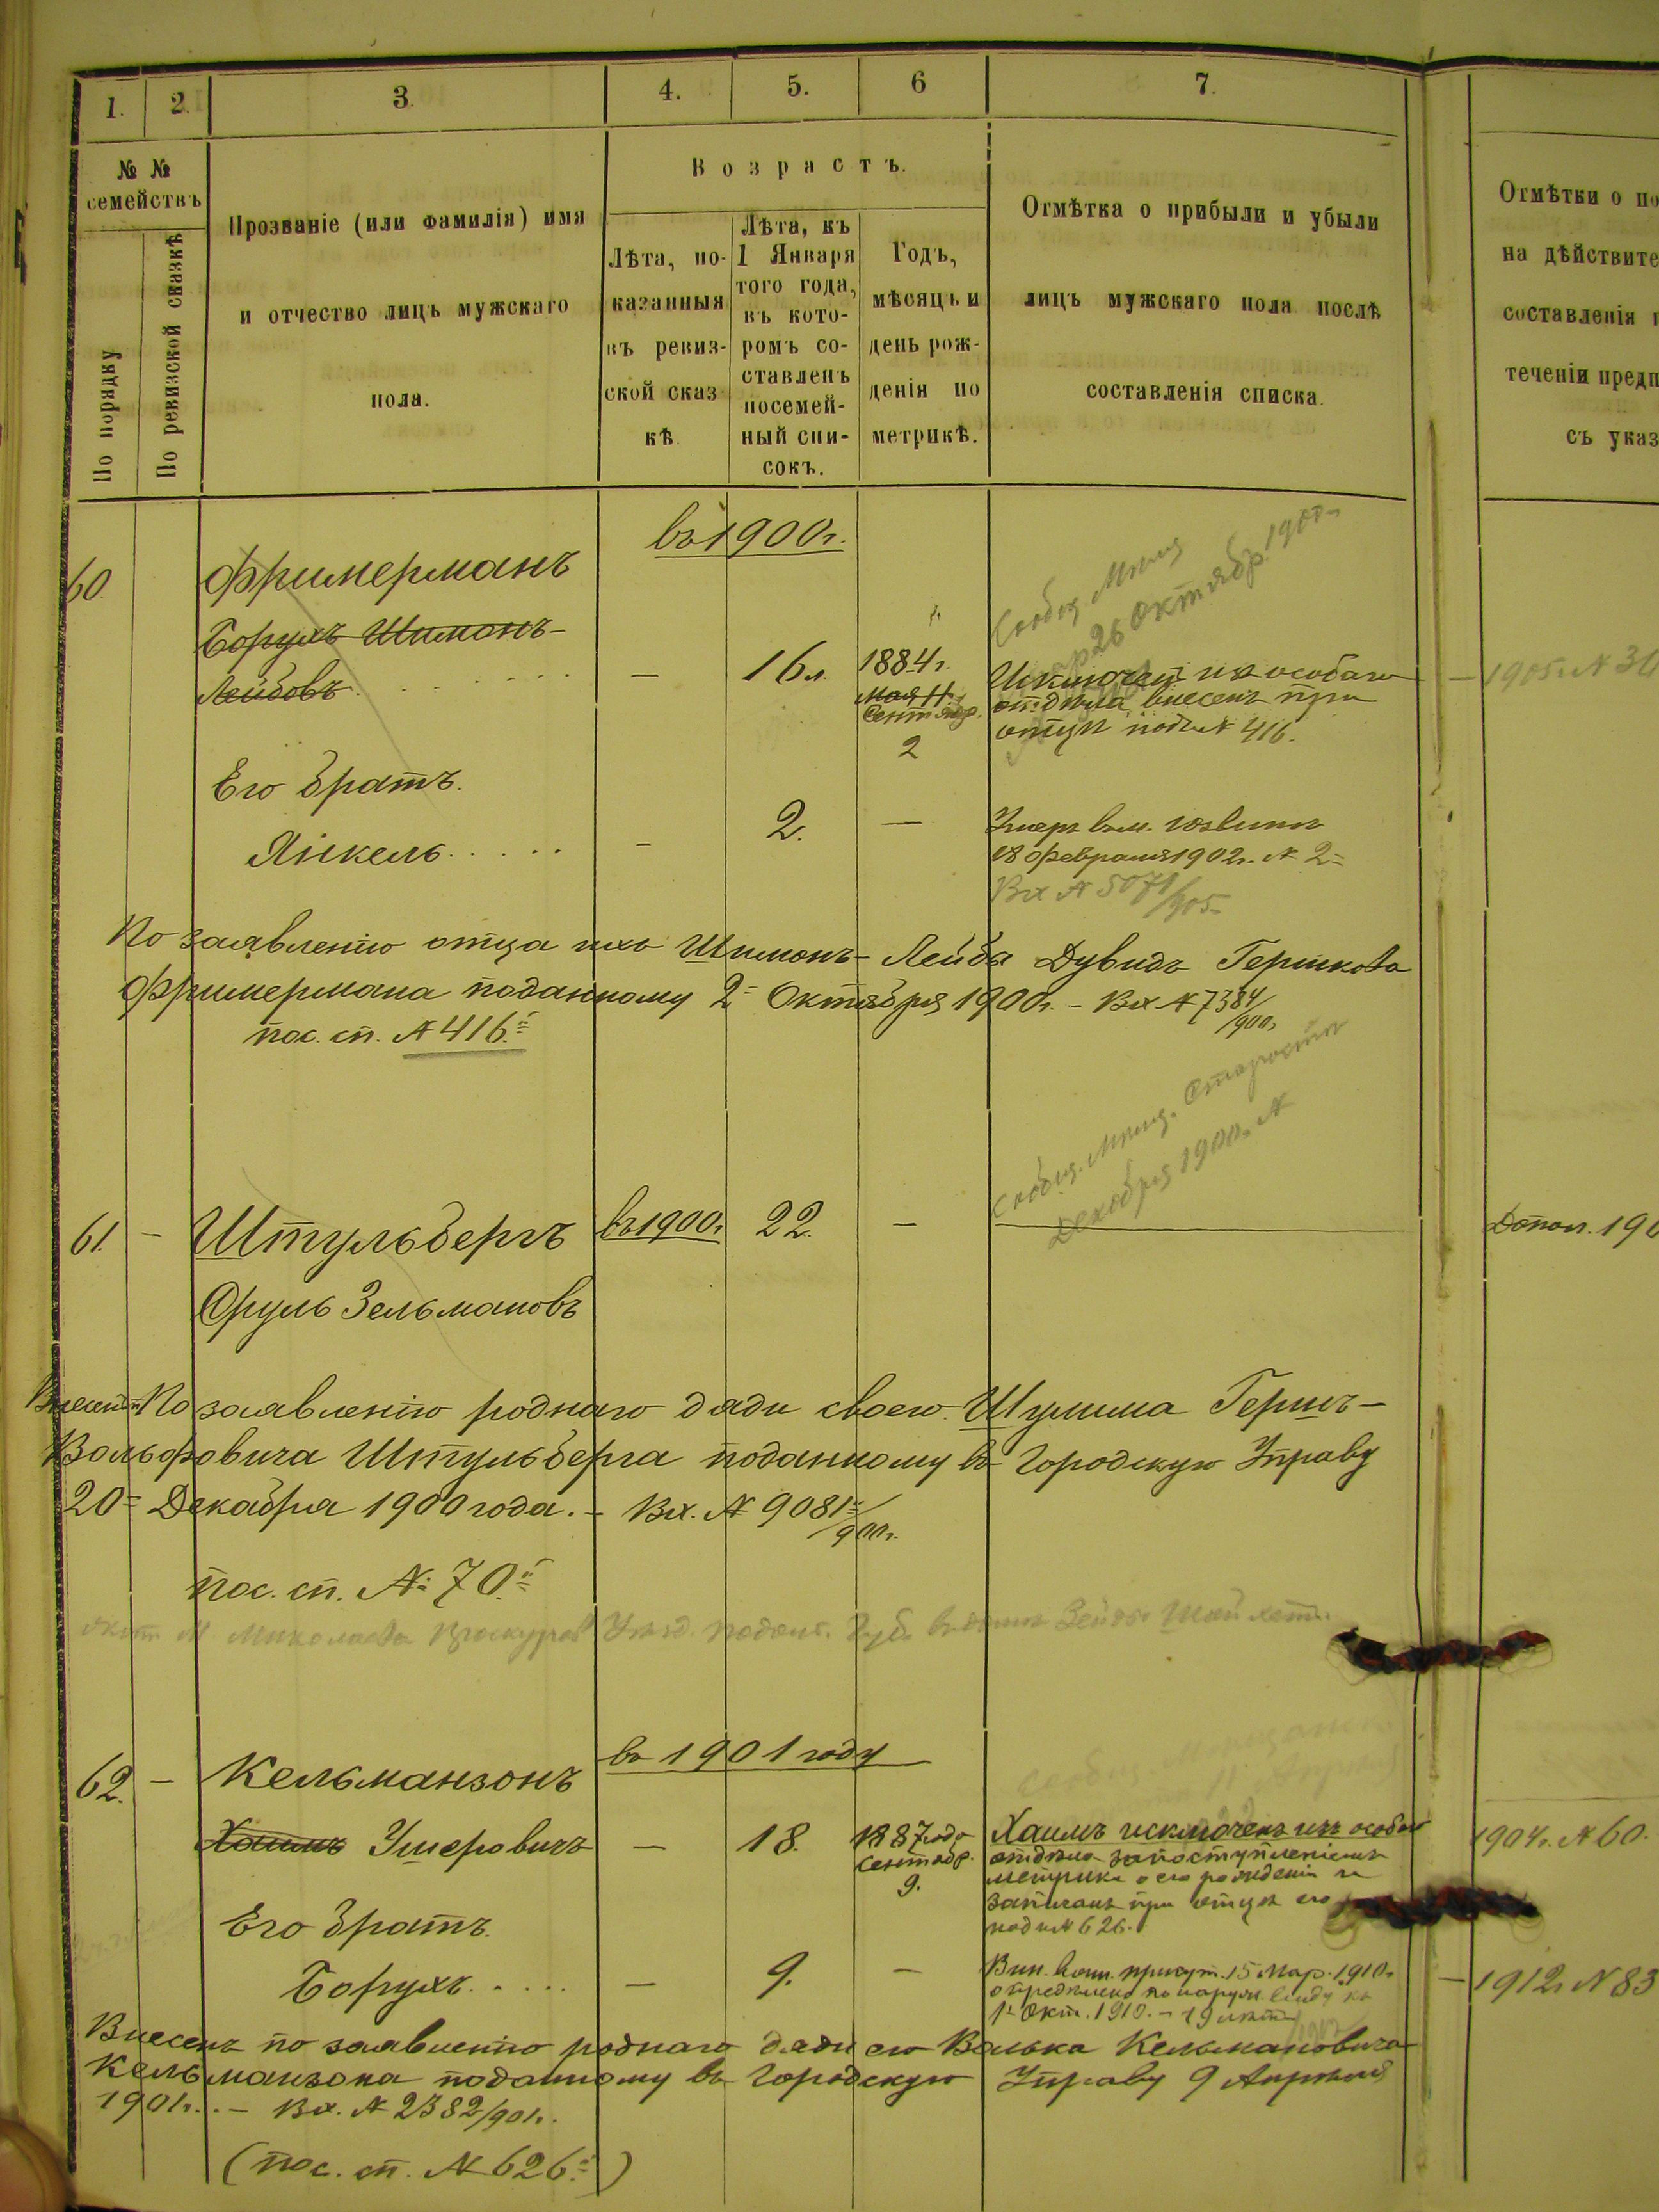 1.
2.
3.
4.
5.
6
7.
№ №
семействъ
По порядку
По ревизской сказкѣ
Прозваніе (или фамилія) имя
и отчество лицъ мужскаго
пола.
Возрастъ.
Лѣта, по-
казанныя
въ ревиз-
ской сказ-
кѣ.
Лѣта, къ
1 Января
того года,
въ кото-
ромъ со-
ставленъ
посемей-
ный спи-
сокъ.
Годъ,
мѣсяцъ и
день рож-
денія по
метрикѣ.
Отмѣтка о прибыли и убыли
лицъ мужскаго пола послѣ
составленія списка.
Отмѣтки о по
на дѣйствите
составленія
теченіи предп
съ указ
въ 1900 г.
60.
Фримерманъ
Борухъ Шимонъ-
Лейбовъ
—
16 л.
1884 г.
Мая 11.
Сентябр.
2
Сообщ. Мѣщ
26 Октябр. 1900 г.
Исключенъ изъ особаго
отдѣла, внесенъ при
отцѣ подъ № 416.
— 1905 г. № 34
Его братъ.
Янкель . . . . .
—
2.
—
Умеръ въ м.
18 Февраля 1902 г. № 2
Вх № 5071/905
По заявленію отца ихъ Шимонъ-Лейба Дувидъ Гершкова
Фримермана поданному 2 Октября 1900 г. – Вх № 7384/900 г.
пос. сп. № 416.й
Сообщ. Мѣщ. Старостѣ
Декабря 1900 г. №
61. — Штульбергъ
въ 1900 г.
22.
—
Допол. 190
Сруль Зельмановъ
Внесенъ По заявленію роднаго дяди своего Шулима Гершъ-
Вольфовича Штульберга поданному въ Городскую Управу
20 Декабря 1900 года. – Вх. № 9081/900 г.
пос. сп. № 70.й
м Миколаева Проскуров Уѣзд. Подол. Губ.
въ 1901 году
62. — Кельманзонъ
Хаимъ Ушеровичъ
—
18.
1887 года
Сентябр.
9.
Хаимъ исключенъ изъ особаго
отдѣла за поступленіемъ
метрики о его рожденіи и
записанъ при отцѣ его
под № 626.
1904 г. № 60.
Его братъ.
Борухъ . . . .
—
9.
—
Вин. Воин. присут. 15 Мар. 1910 г.
опредѣлено по наружн. виду къ
1 Окт. 1910. – 19 лѣтъ
— 1912 г. № 83
Внесенъ по заявленію роднаго дяди его Волька Кельмановича
Кельманзона поданному въ Городскую Управу 9 Апрѣля
1901 г. – Вх. № 2382/901 г.
(пос. сп. № 626.й)